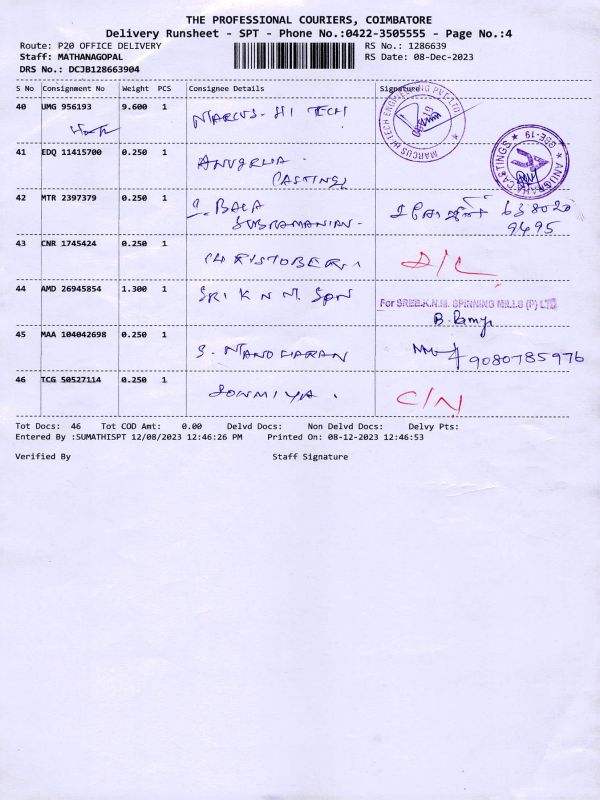 THE PROFESSIONAL COURIERS, COIMBATORE
Delivery Runsheet - SPT - Phone No.:0422-3505555 - Page No.:4
Route: P20 OFFICE DELIVERY RS No.: 1286639
Staff: MATHANAGOPAL RS Date: 08-Dec-2023
DRS No.: DCJB128663904
S No Consignment No Weight PCS Consignee Details Signature
40 UMG 956193 9.600 1 MARCUS-HI TECH
MARCUS HI-TECH ENGINEERING PVT LTD
41 EDQ 11415700 0.250 1 ANUGRHA
CASTING
ANUGRAHA CASTINGS CBE-19
42 MTR 2397379 0.250 1 S. BALA
SUBRAMANIAN- 638020
9495
43 CNR 1745424 0.250 1 CHRISTOBER D/C
44 AMD 26945854 1.300 1 SRI K N M SPN
For SREE.K.N.M. SPINNING MILLS (P) LTD
B. Ramya
45 MAA 104042698 0.250 1 S. MANOHARAN 9080785976
46 TCG 50527114 0.250 1 SONMIYA. C/N
Tot Docs: 46 Tot COD Amt: 0.00 Delvd Docs: Non Delvd Docs: Delvy Pts:
Entered By :SUMATHISPT 12/08/2023 12:46:26 PM Printed On: 08-12-2023 12:46:53
Verified By Staff Signature